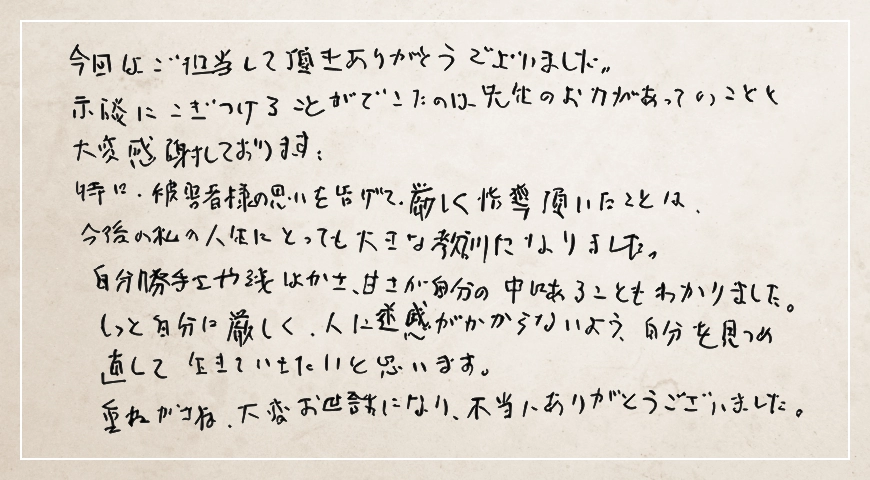 今回はご担当して頂きありがとうございました。
示談にこぎつけることができたのは、先生のお力があってのことと
大変感謝しております。
特に、被害者様の思いを告げて、厳しく指導頂いたことは、
今後の私の人生にとっても大きな教訓になりました。
自分勝手さや浅はかさ、甘さが自分の中にあることもわかりました。
もっと自分に厳しく、人に迷惑がかからないよう、自分を見つめ
直して生きていきたいと思います。
重ねがさね、大変お世話になり、本当にありがとうございました。